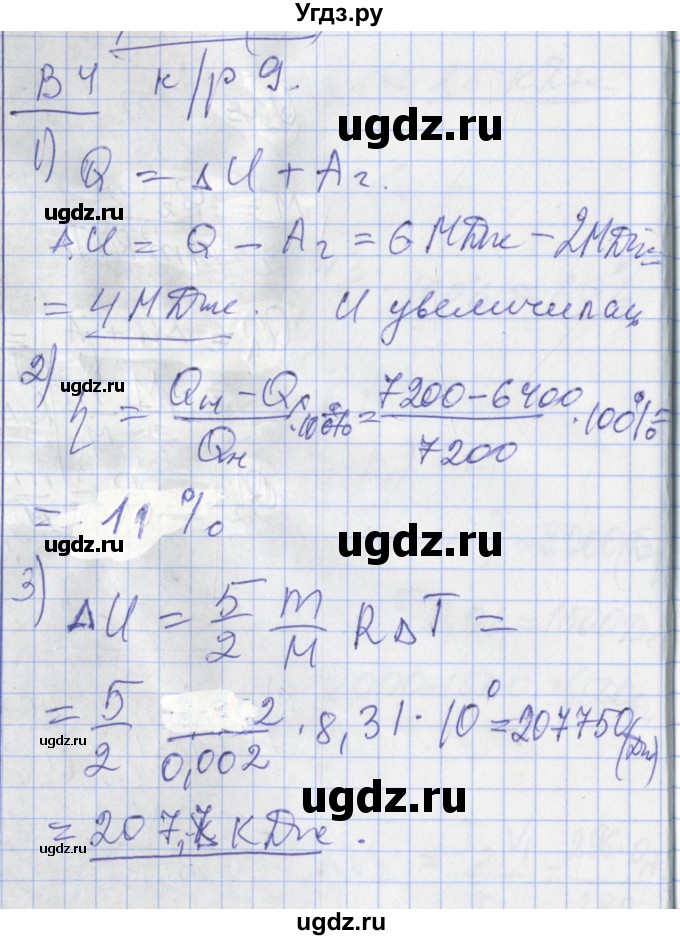 Угдз.ру
В4 к/р 9.
ugdz.ru
1) Q = ΔU + Aг.
ugdz.ru
ΔU = Q − Aг = 6 МДж − 2 МДж =
= 4 МДж. U увеличилась
ugdz.ru ugdz.ru
2) η = (Qн − Qх)/Qн · 100% = (7200 − 6400)/7200 · 100% =
= 11 %
ugdz.ru ugdz.ru
3) ΔU = 5/2 m/M RΔT =
= 5/2 2/0,002 · 8,31 · 10° = 207750 (Дж)
ugdz.ru ugdz.ru
= 207,7 кДж.
ugdz.ru
ugdz.ru